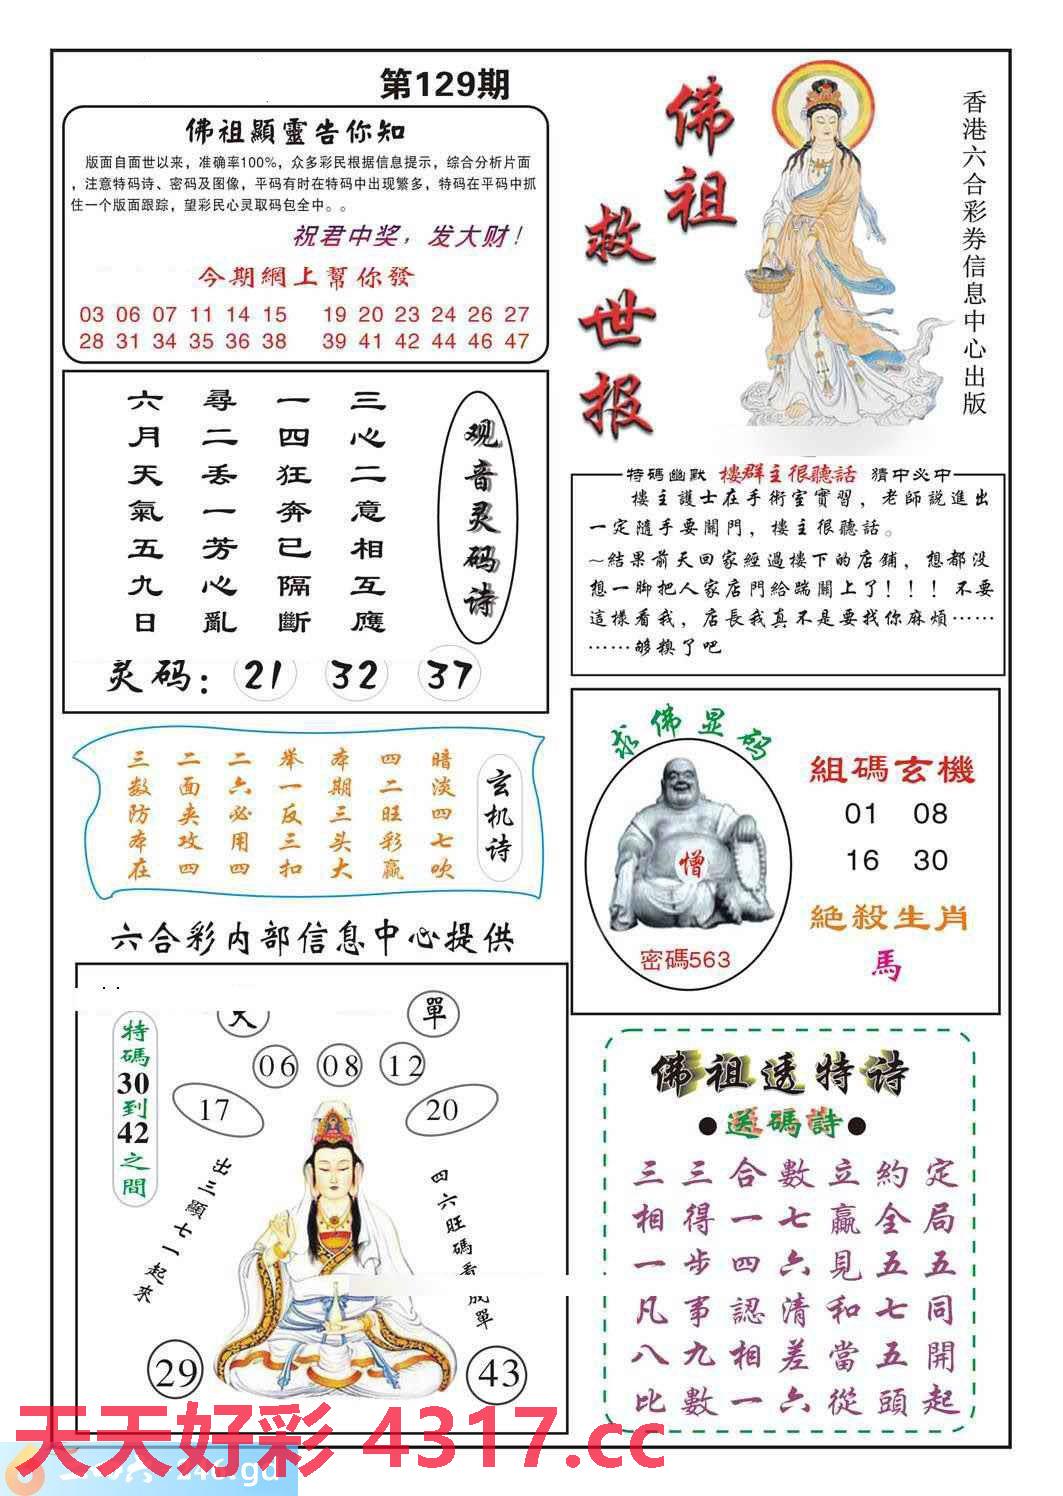 第129期
佛祖顯靈告你知
版面自面世以来，准确率100%，众多彩民根据信息提示，综合分析片面
，注意特码诗、密码及图像，平码有时在特码中出现繁多，特码在平码中抓
住一个版面跟踪，望彩民心灵取码包全中。。
祝君中奖，发大财！
今期網上幫你發
03 06 07 11 14 15 19 20 23 24 26 27
28 31 34 35 36 38 39 41 42 44 46 47
佛祖
救世报
香港六合彩券信息中心出版
观音灵码诗
三心二意相互應
一四狂奔已隔斷
尋二丢一芳心亂
六月天氣五九日
灵码：21 32 37
特碼幽默 樓群主很聽話 猜中必中
樓主護士在手術室實習，老師説進出
一定隨手要關門，樓主很聽話。
~结果前天回家經過樓下的店鋪，想都没
想一脚把人家店門給踹關上了！！！不要
這樣看我，店長我真不是要找你麻煩……
……够糗了吧
玄机诗
暗淡四七吹
四二旺彩赢
本期三头大
举一反三扣
二六必用四
二面夹攻四
三数防本在
求佛显码
憎
密碼563
組碼玄機
01 08
16 30
絶殺生肖
馬
六合彩内部信息中心提供
特碼30到42之間
單
06 08 12
17 20
出三顯七一起來
四六旺碼
單
29 43
佛祖透特诗
●送碼詩●
三三合數立約定
相得一七贏全局
一步四六見五五
凡事認清和七同
八九相差當五開
比數一六從頭起
天天好彩 4317.cc
246.gd